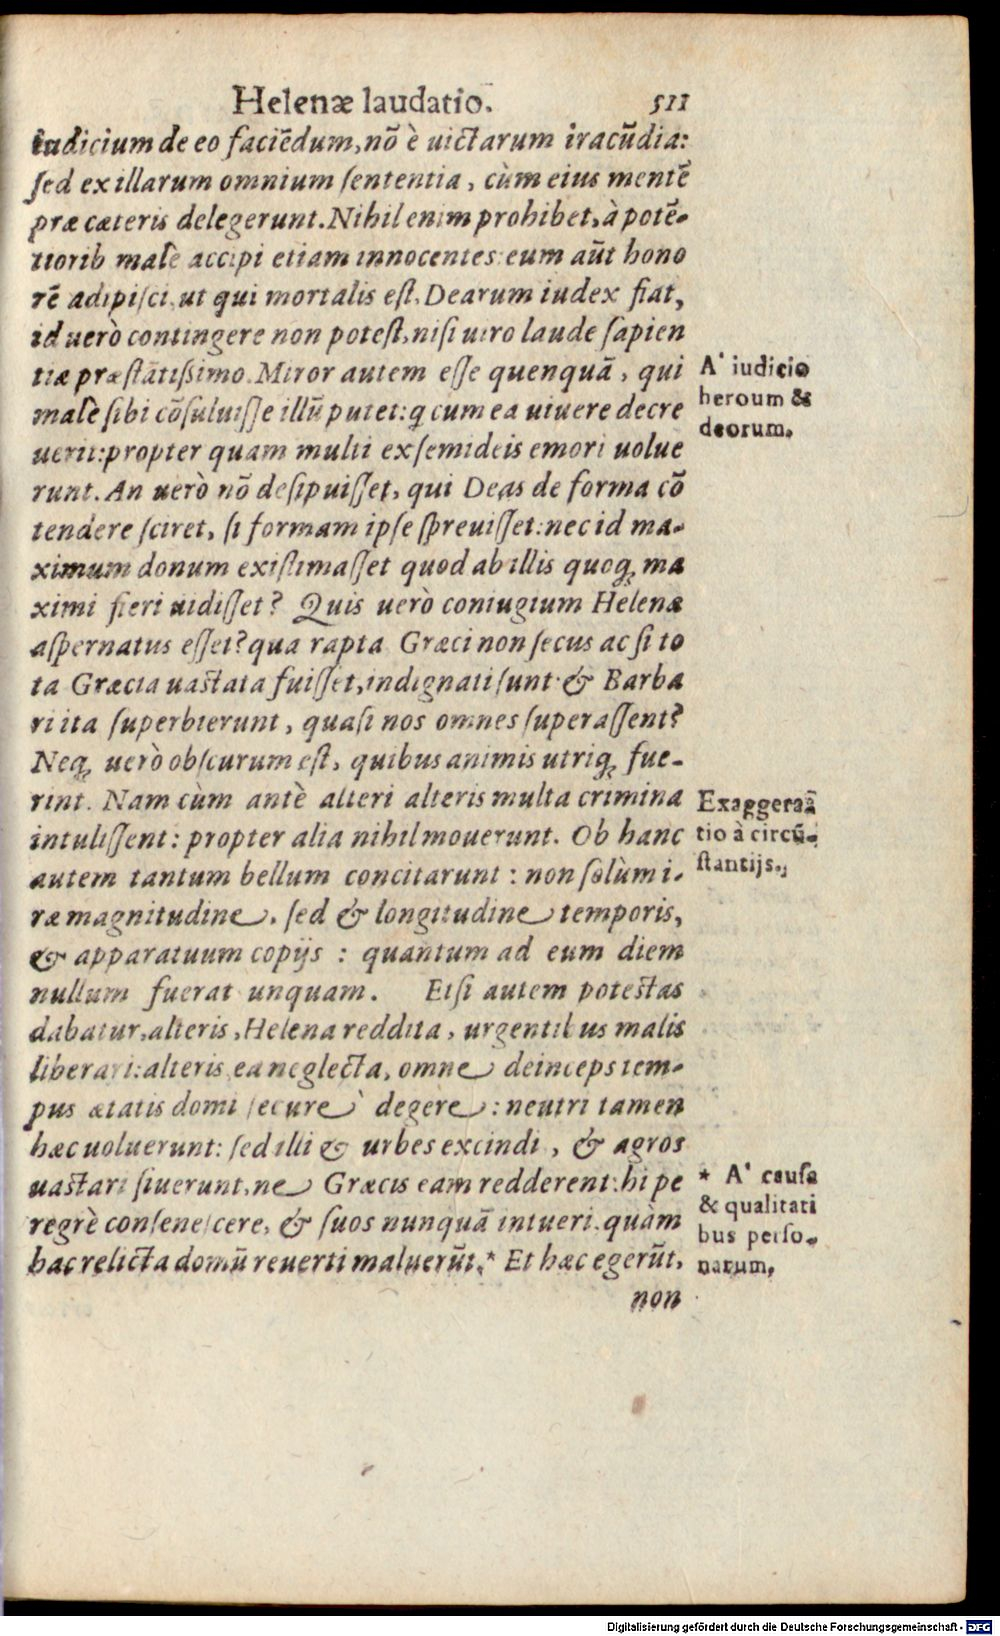 Helenæ laudatio. 511
iudicium de eo faciẽdum, nõ è uictarum iracũdia:
ſed ex illarum omnium ſententia, cùm eius mentẽ
præ cæteris delegerunt. Nihil enim prohibet, à potẽ-
tiorib male accipi etiam innocentes: eum aũt hono
rẽ adipiſci, ut qui mortalis eſt, Dearum iudex fiat,
id uerò contingere non poteſt, niſi uiro laude ſapien
tiæ præſtãtiſsimo. Miror autem eſſe quenquã, qui
male ſibi cõſuluiſſe illũ putet: ꝙ cum ea uiuere decre
uerit: propter quam multi ex ſemideis emori uolue
runt. An uerò nõ deſipuiſſet, qui Deas de forma cõ
tendere ſciret, ſi formam ipſe ſpreuiſſet: nec id ma-
ximum donum exiſtimaſſet quod ab illis quoq; ma
ximi fieri uidiſſet? Quis uerò coniugium Helenæ
aſpernatus eſſet? qua rapta Græci non ſecus ac ſi to
ta Græcia uaſtata fuiſſet, indignati ſunt: & Barba
ri ita ſuperbierunt, quaſi nos omnes ſuperaſſent?
Neq; uerò obſcurum eſt, quibus animis utriq; fue-
rint. Nam cùm antè alteri alteris multa crimina
intuliſſent: propter alia nihil mouerunt. Ob hanc
autem tantum bellum concitarunt: non ſolùm i-
ræ magnitudine, ſed & longitudine temporis,
& apparatuum copijs: quantum ad eum diem
nullum fuerat unquam. Etſi autem poteſtas
dabatur, alteris, Helena reddita, urgentibus malis
liberari: alteris ea neglecta, omne deinceps tem-
pus ætatis domi ſecurè degere: neutri tamen
hæc uoluerunt: ſed illi & urbes excindi, & agros
uaſtari ſiuerunt, ne Græcis eam redderent: hi pe
regrè conſeneſcere, & ſuos nunquã intueri, quàm
hac relicta domũ reuerti maluerũt.* Et hæc egerũt,
non
A' iudicio
heroum &
deorum.
Exaggeraã
tio à circũ-
ſtantijs.
* A' cauſa
& qualitati
bus perſo-
narum.
Digitalisierung gefördert durch die Deutsche Forschungsgemeinschaft - DFG